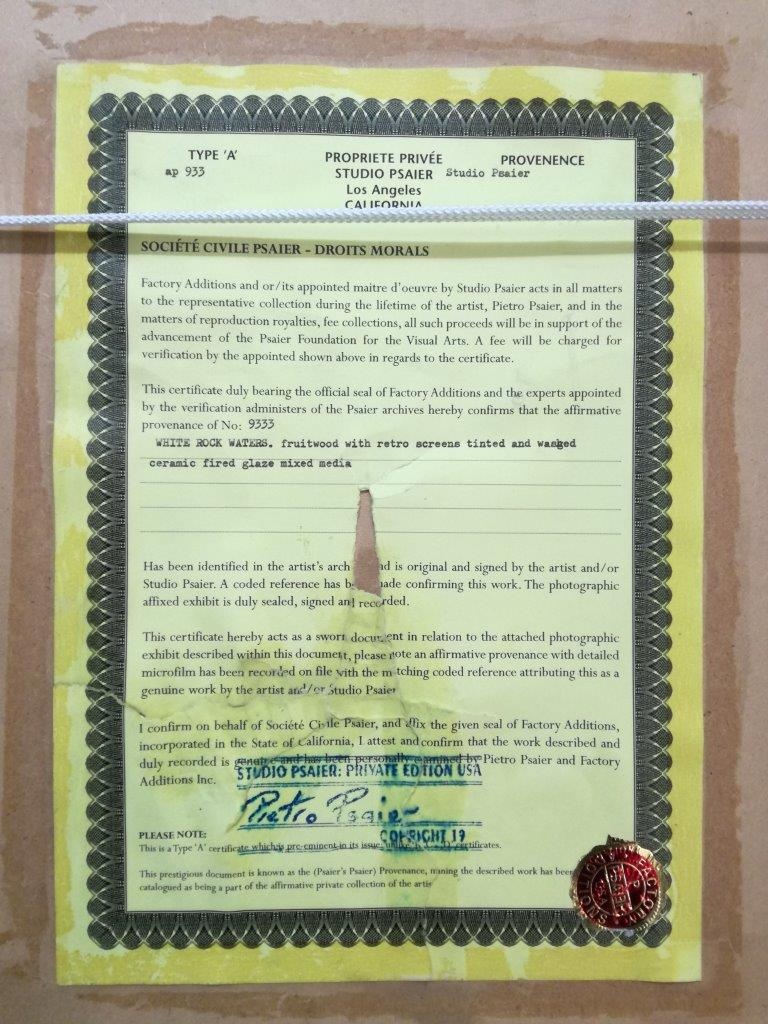 TYPE 'A' PROPRIETE PRIVÉE PROVENENCE
ap 933 STUDIO PSAIER Studio Psaier
Los Angeles
CALIFORNIA
SOCIÉTÉ CIVILE PSAIER – DROITS MORALS
Factory Additions and or/its appointed maitre d'oeuvre by Studio Psaier acts in all matters
to the representative collection during the lifetime of the artist, Pietro Psaier, and in the
matters of reproduction royalties, fee collections, all such proceeds will be in support of the
advancement of the Psaier Foundation for the Visual Arts. A fee will be charged for
verification by the appointed shown above in regards to the certificate.
This certificate duly bearing the official seal of Factory Additions and the experts appointed
by the verification administers of the Psaier archives hereby confirms that the affirmative
provenance of No: 9333
WHITE ROCK WATERS. fruitwood with retro screens tinted and washed
ceramic fired glaze mixed media
Has been identified in the artist's arch nd is original and signed by the artist and/or
Studio Psaier. A coded reference has b ade confirming this work. The photographic
affixed exhibit is duly sealed, signed and recorded.
This certificate hereby acts as a sworn document in relation to the attached photographic
exhibit described within this document, please note an affirmative provenance with detailed
microfilm has been recorded on file with the m tching coded reference attributing this as a
genuine work by the artist and/or Studio Psaier
I confirm on behalf of Société Civile Psaier, and affix the given seal of Factory Additions,
incorporated in the State of California, I attest and confirm that the work described and
duly recorded is genuine and has been personally examined by Pietro Psaier and Factory
Additions Inc.
STUDIO PSAIER: PRIVATE EDITION USA
Pietro Psaier
COPRIGHT 19
PLEASE NOTE:
This is a Type 'A' certificate which is pre-eminent in its issue, unlike certificates.
This prestigious document is known as the (Psaier's Psaier) Provenance, maning the described work has been
catalogued as being a part of the affirmative private collection of the artis